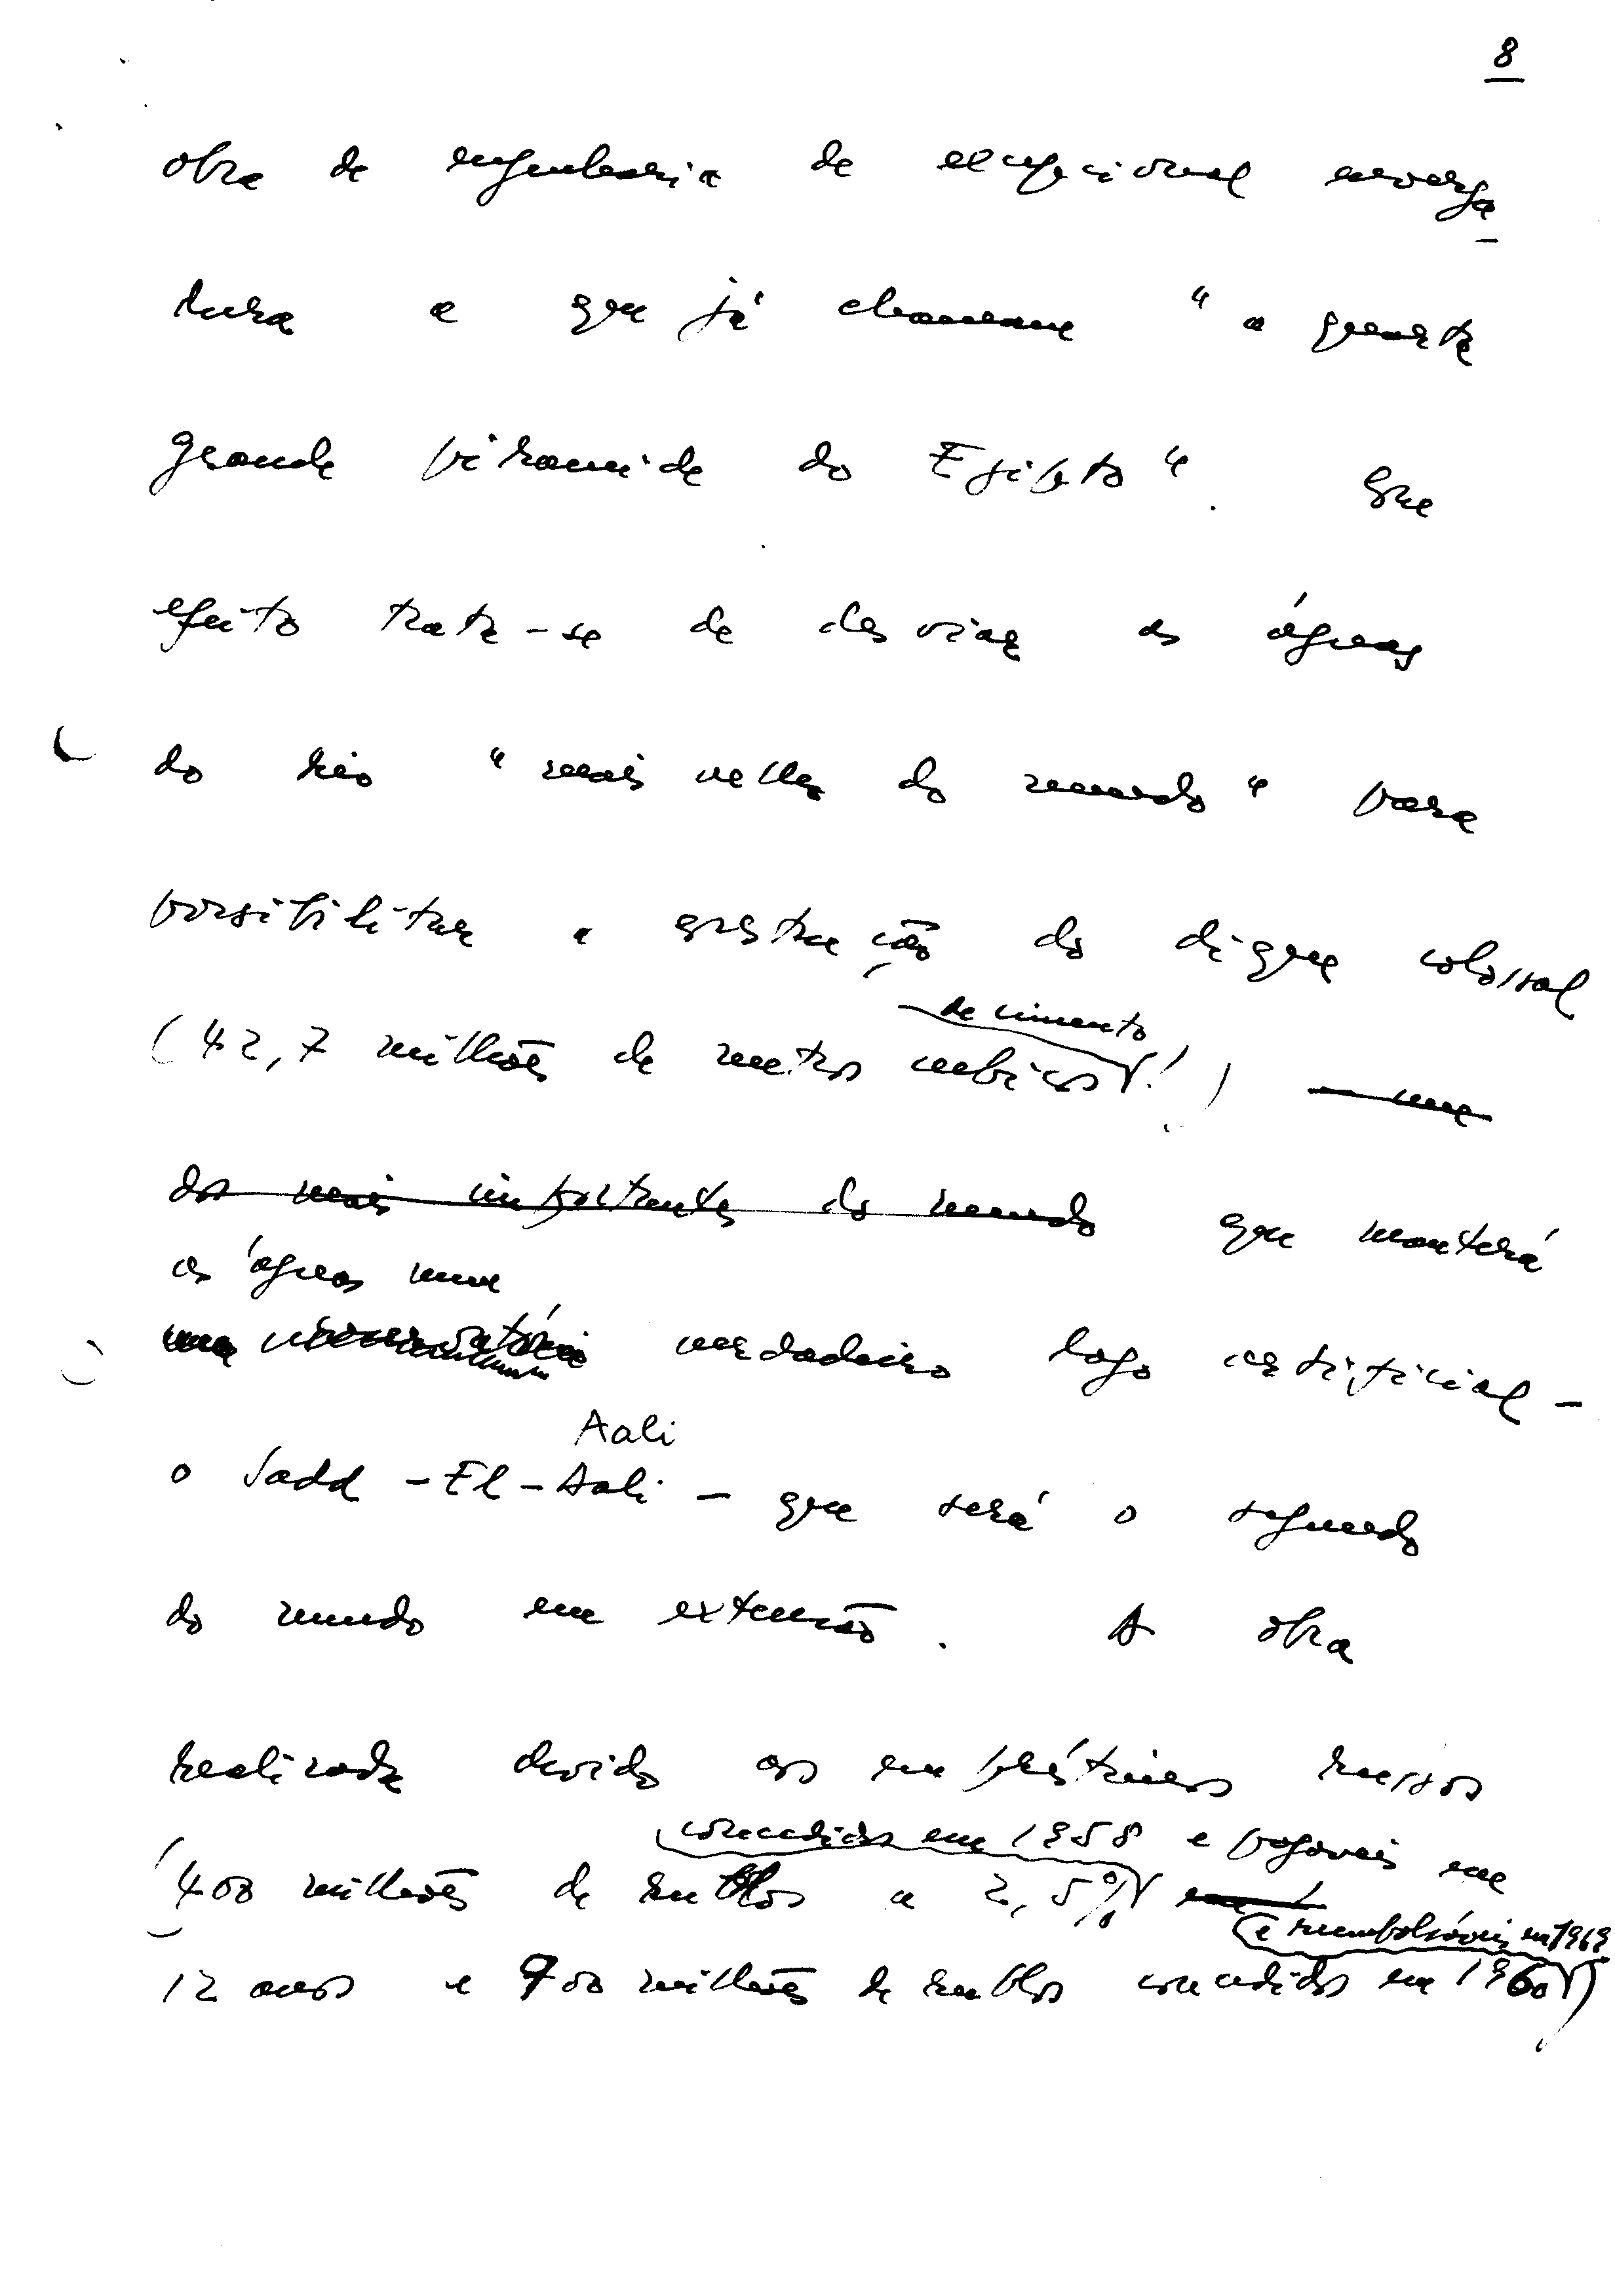 8
obra de engenharia de excepcional enverga
dura a que já chamam " a quarta
grande piramide do Egipto ". Com
efeito trata-se de desviar as águas
do rio " mais velho do mundo " para
possibilitar a construção do dique colossal
de cimento
( 42,7 milhões de metros cubicos ! ) - um
dos mais importantes do mundo que manterá
as águas num
verdadeiro lago artificial -
Aali
o Sadd - El - Aali - que será o segundo
do mundo em extensão . A obra
realizada devido aos empréstimos russos
concedidos em 1958 e pagáveis em
( 400 milhões de rublos a 2,5%
e reembolsáveis em 1969
12 anos e 900 milhões de rublos concedidos em 1960 )